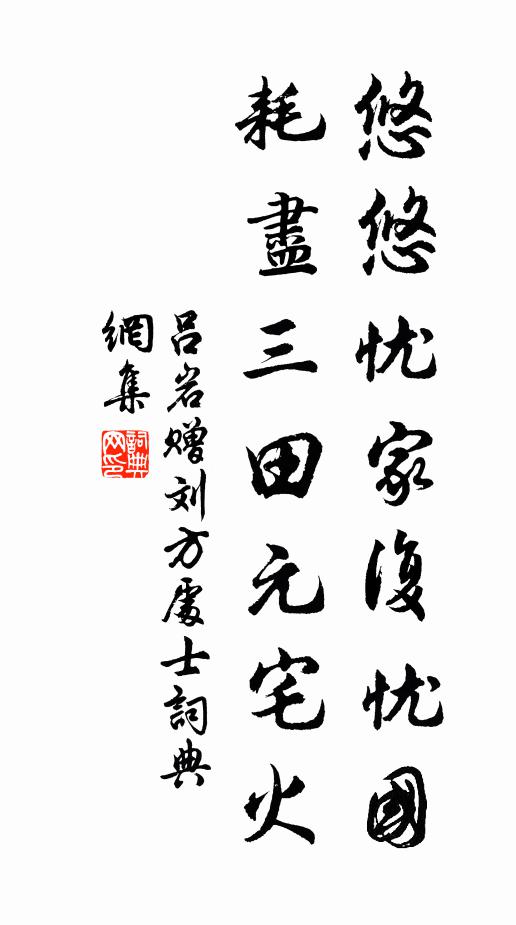 悠悠忧家復忧國
耗盡三田元宅火
吕岩赠刘方處士詞典
網集
詞典網印